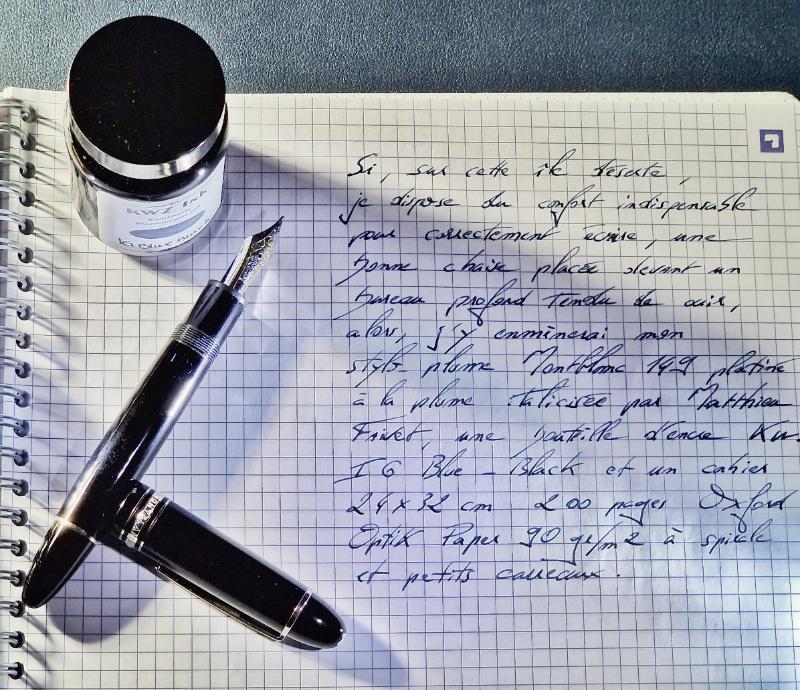 KWZ Ink
IG Blue Black
Si, sur cette île déserte,
je dispose du confort indispensable
pour correctement écrire, une
bonne chaise placée devant un
bureau profond tendu de cuir,
alors, j'y emmènerai mon
stylo plume Montblanc 149 platine
à la plume italicisée par Matthieu
une bouteille d'encre KW
IG Blue-Black et un cahier
24x32 cm 200 pages Oxford
Optik Paper 90 gr/m2 à spirale
et petits carreaux.